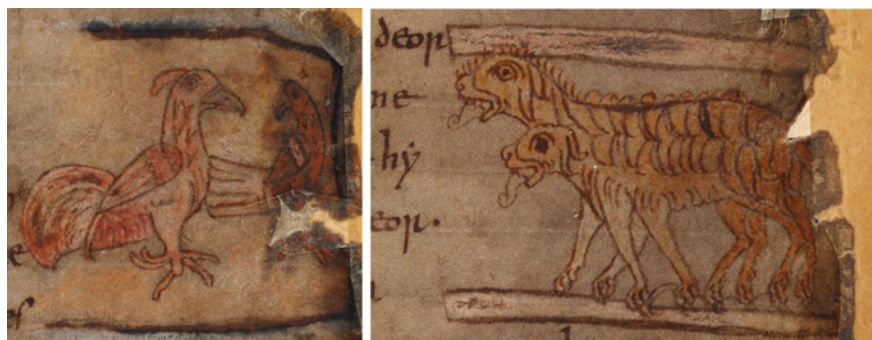 e
deor
ne
hy
eor.